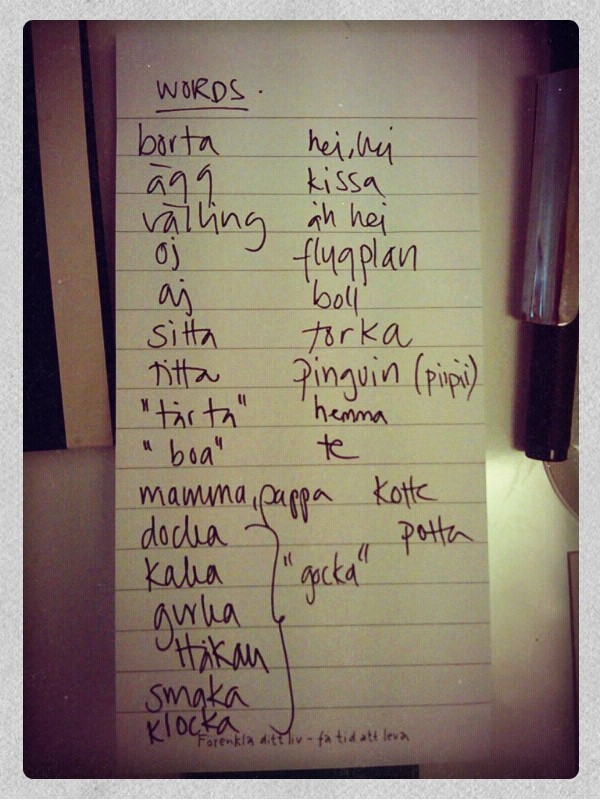 WORDS.
borta hei, hei
ägg kissa
välling åh hei
oj flygplan
aj boll
sitta torka
titta pinguin (piipii)
"tårta" hemma
"boa" te
mamma, pappa kotte
docka potta
kaka "gocka"
gurka
Håkan
smaka
klocka
Förenkla ditt liv - få tid att leva